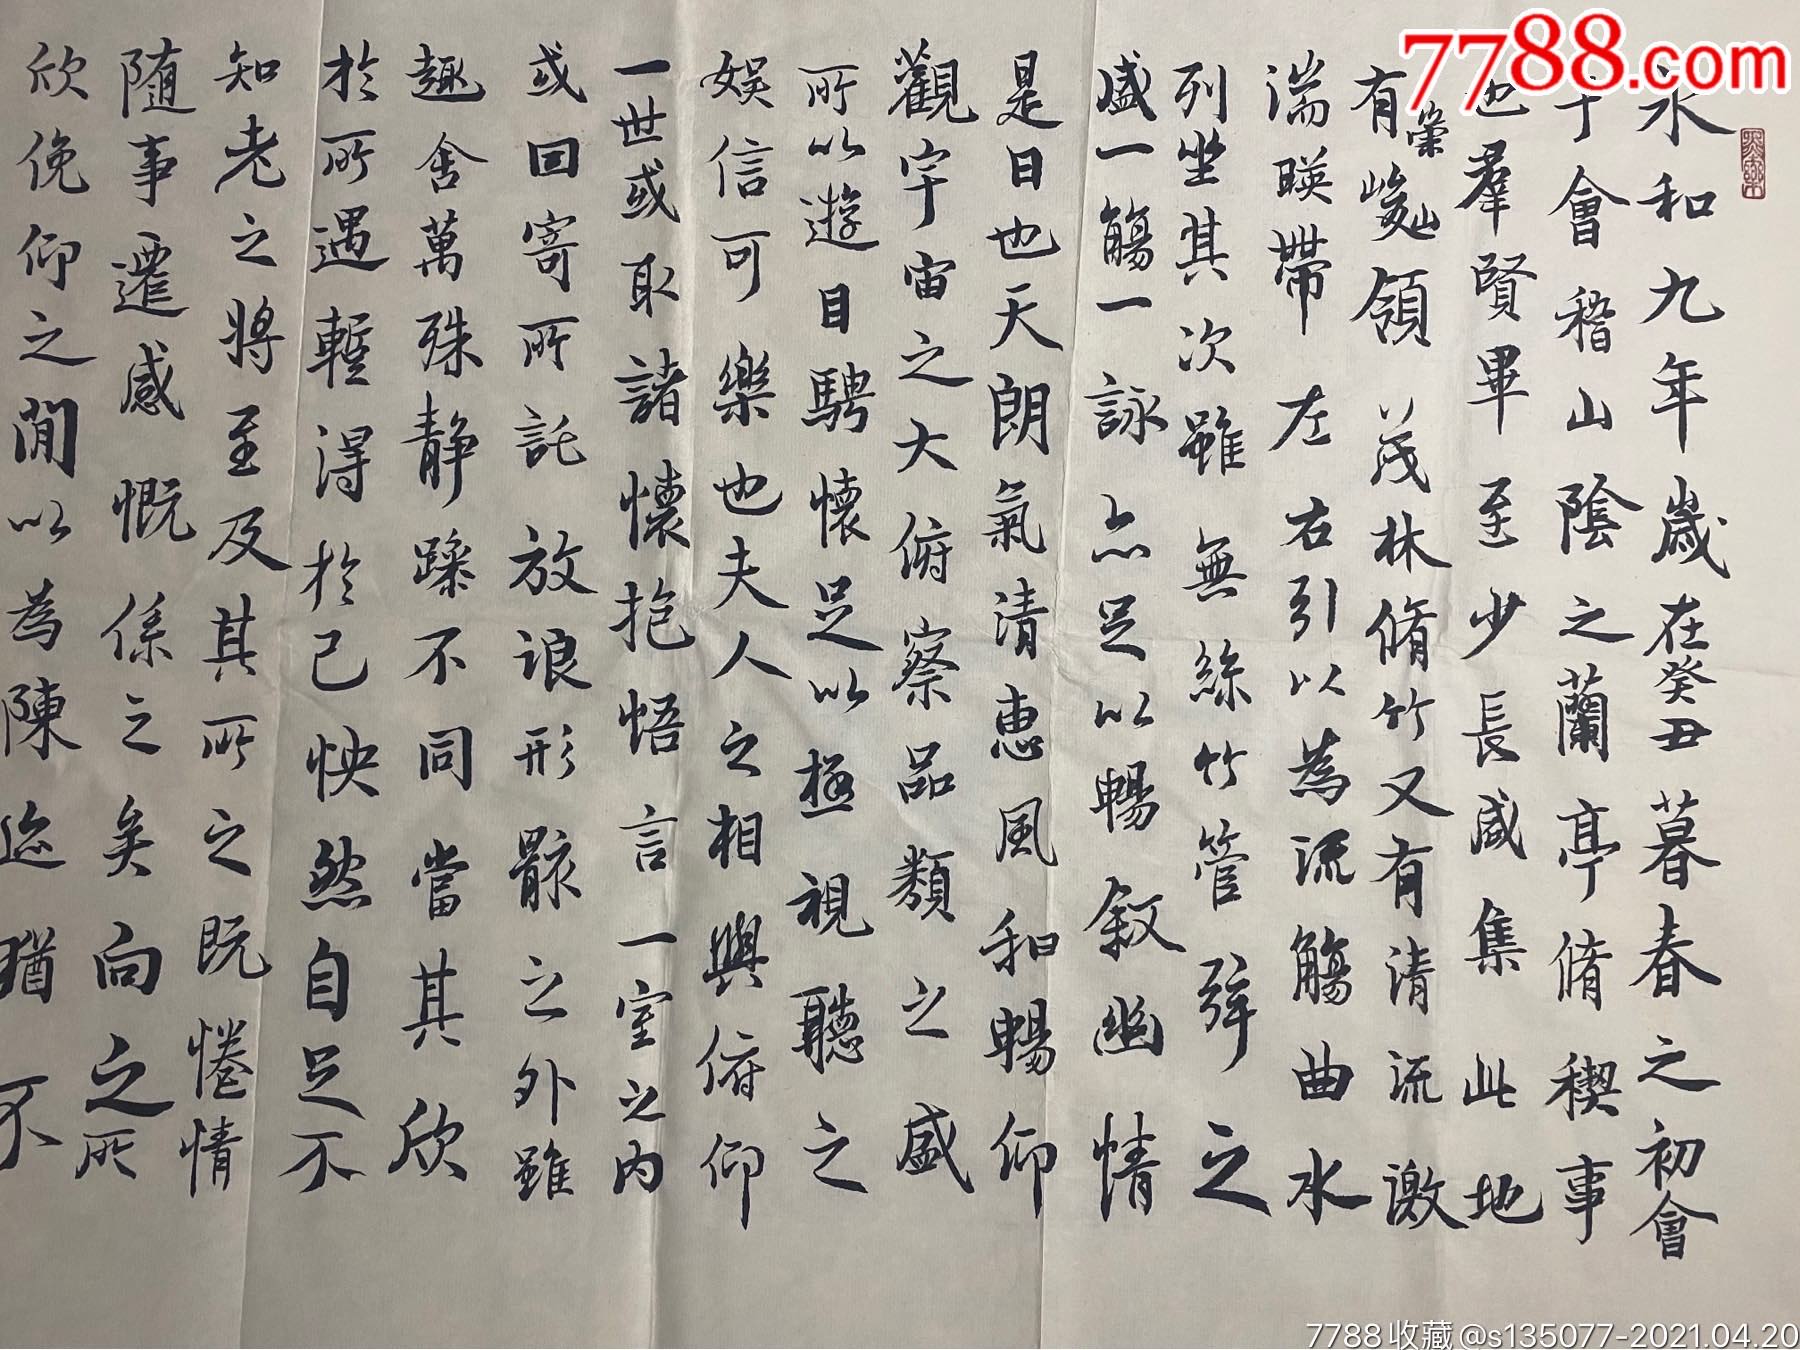 永和九年歲在癸丑暮春之初會
于會稽山陰之蘭亭脩稧事
也羣賢畢至少長咸集此地
有崇峻領茂林脩竹又有清流激
湍暎帶左右引以為流觴曲水
列坐其次雖無絲竹管弦之
盛一觴一詠亦足以暢敘幽情
是日也天朗氣清惠風和暢仰
觀宇宙之大俯察品類之盛
所以遊目騁懷足以極視聽之
娛信可樂也夫人之相與俯仰
一世或取諸懷抱悟言一室之內
或因寄所託放浪形骸之外雖
趣舍萬殊静躁不同當其欣
於所遇蹔得於己怏然自足不
知老之將至及其所之既惓情
随事遷感慨係之矣向之所
欣俛仰之閒以為陳迹猶不
7788.com
7788收藏@s135077-2021.04.20